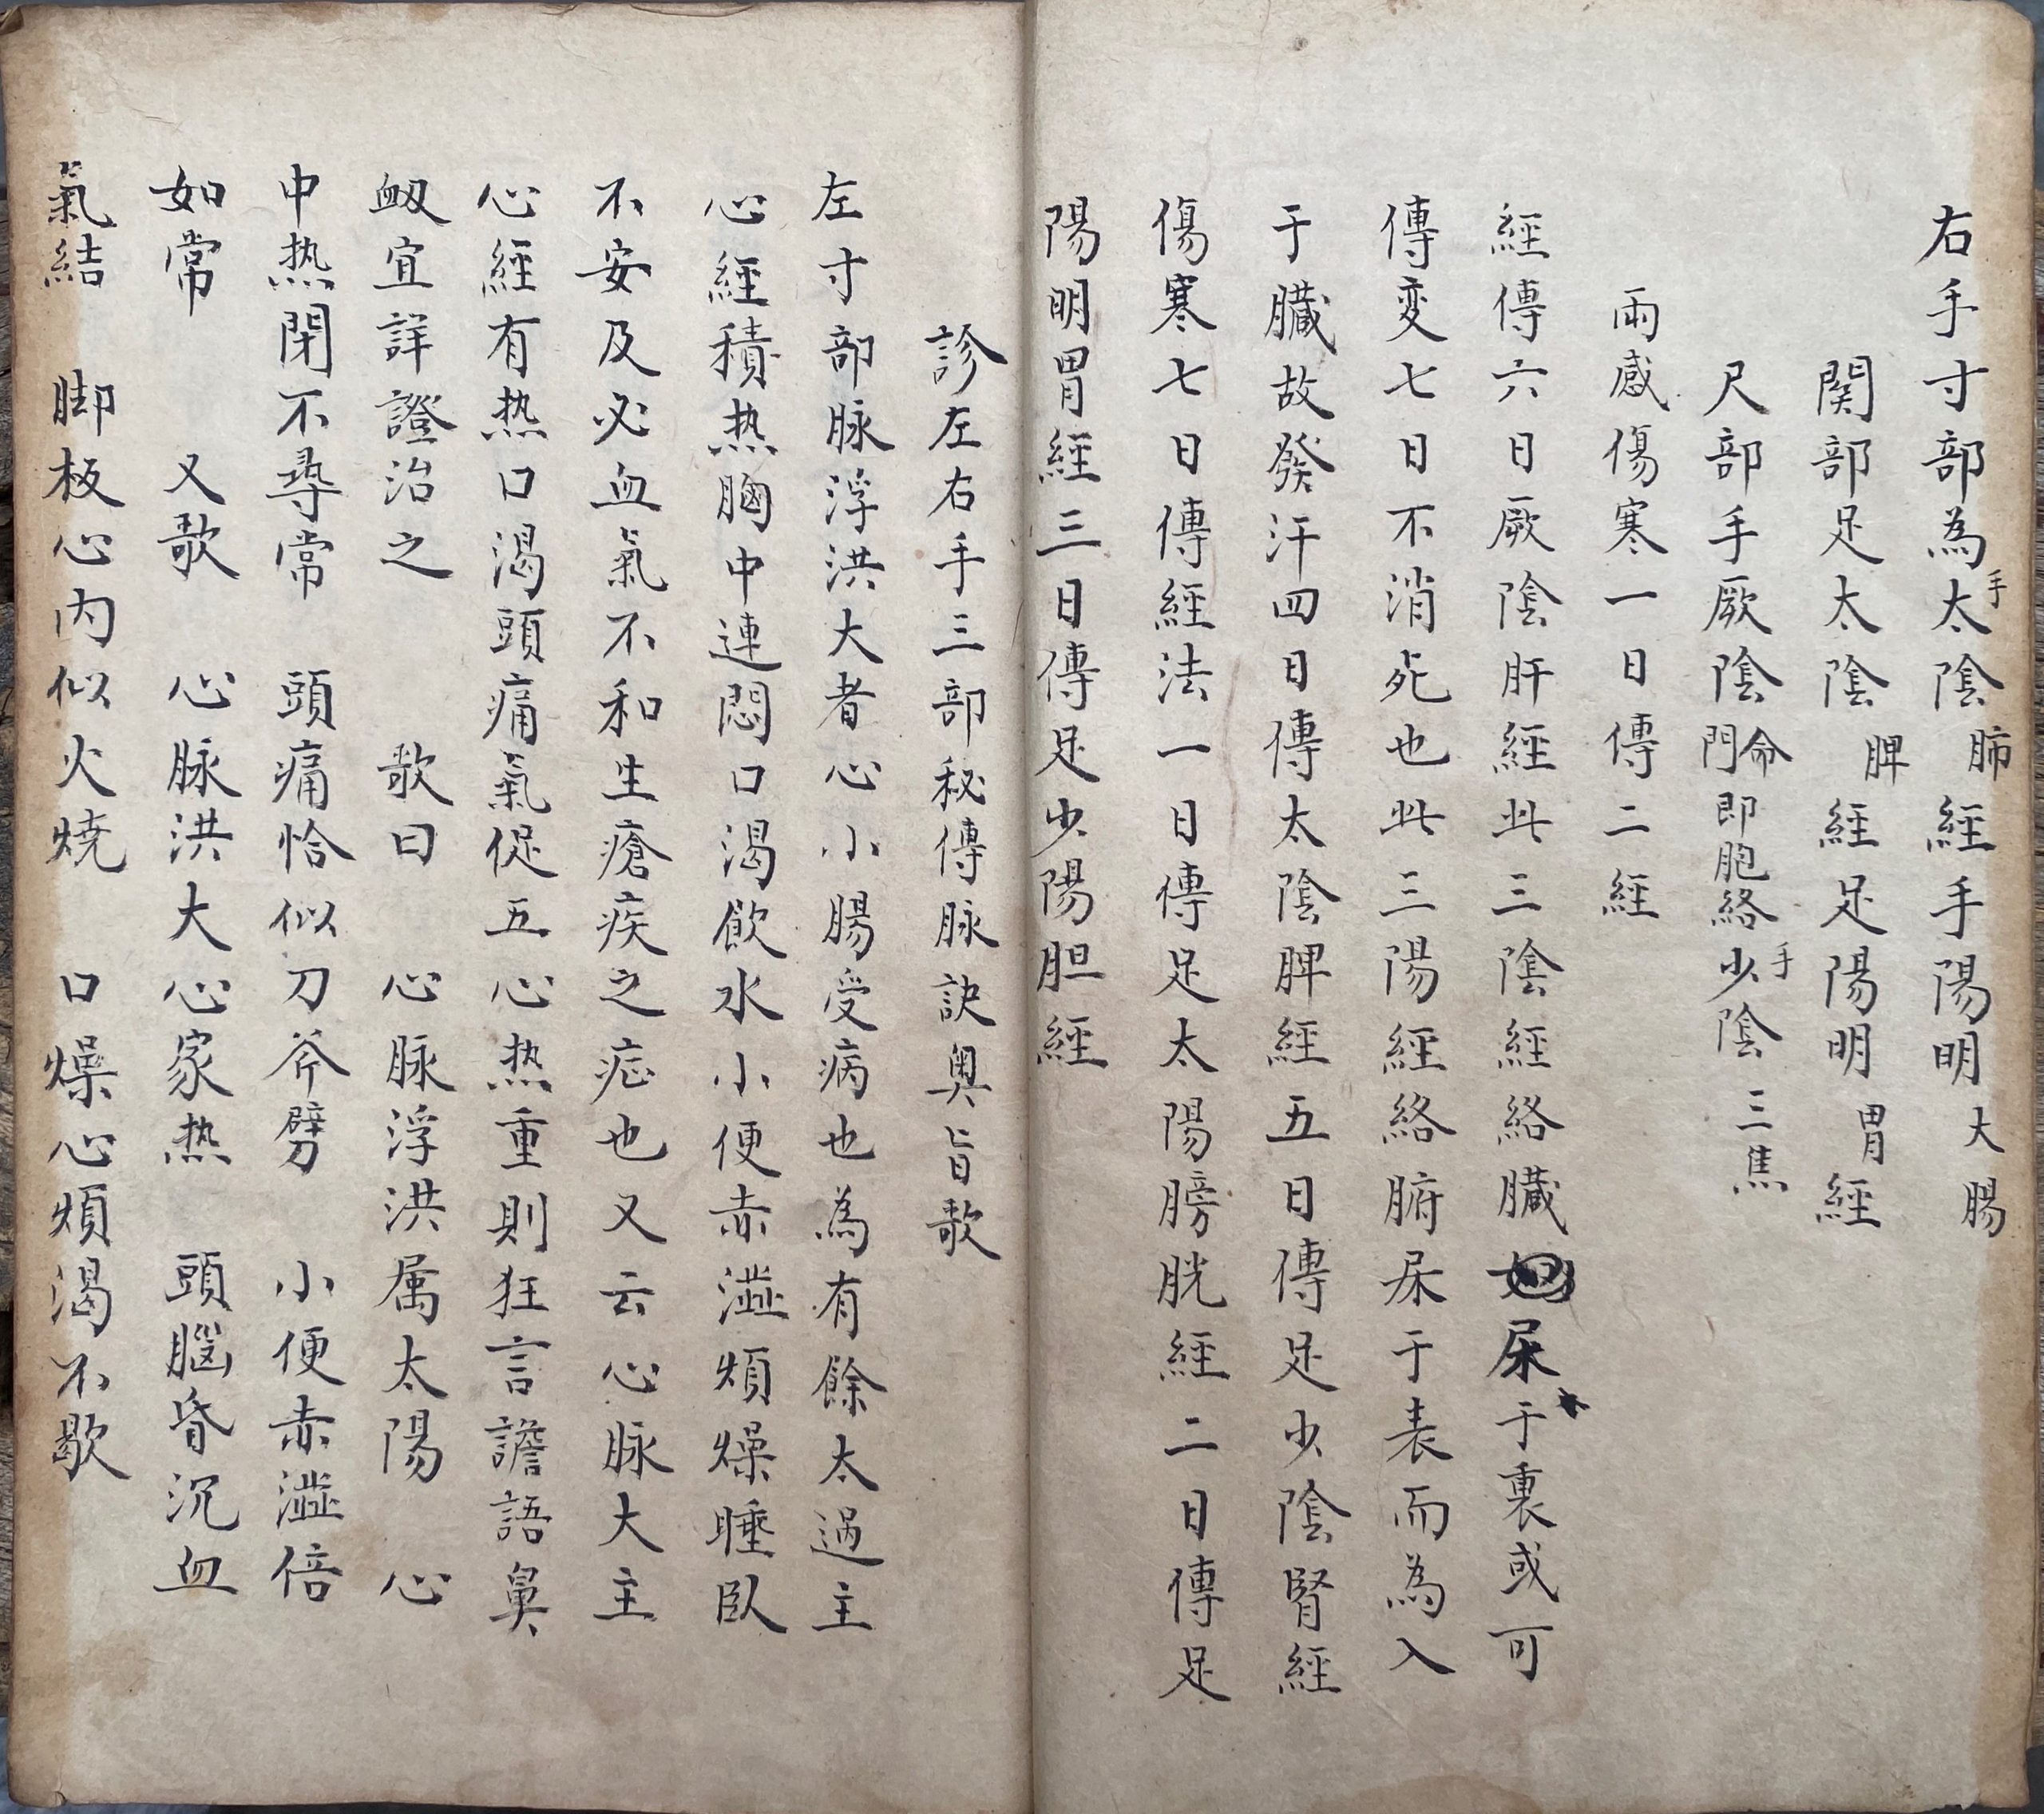 右手寸部為手太陰肺經手陽明大腸
関部足太陰脾經足陽明胃經
尺部手厥陰命門即胞絡手少陰三焦
兩感傷寒一日傳二經
經傳六日厥陰肝經此三陰經絡臓尿于裏或可
傳変七日不消死也此三陽經絡腑尿于表而為入
于臓故發汗四日傳太陰脾經五日傳足少陰腎經
傷寒七日傳經法一日傳足太陽膀胱經二日傳足
陽明胃經三日傳足少陽胆經
診左右手三部秘傳脉訣奧旨歌
左寸部脉浮洪大者心小腸受病也為有餘太過主
心經積热胸中連悶口渴飲水小便赤澁煩燥睡臥
不安及必血氣不和生瘡疾之症也又云心脉大主
心經有热口渴頭痛氣促五心热重則狂言譫語鼻
衂宜詳證治之 歌曰 心脉浮洪属太陽 心
中热閉不尋常 頭痛恰似刀斧劈 小便赤澁倍
如常 又歌 心脉洪大心家热 頭腦昏沉血
氣結 脚板心内似火燒 口燥心煩渴不歇